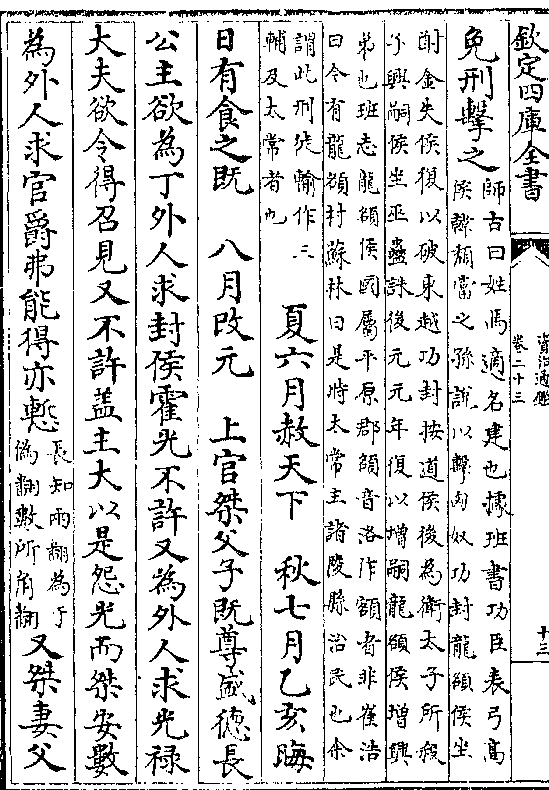 欽定四庫全書
資治通鑑
卷二十三
十三
免刑擊之
師古曰姓馬適名建也據班書功臣表弓高
侯韓頽當之孫說以擊匈奴功封龍頟侯坐
酎金失侯復以破東越功封按道侯後為衛太子所殺
子興嗣侯坐巫蠱誅後元元年復以增嗣龍頟侯增興
弟也班志龍頟侯國屬平原郡頟音洛作額者非崔浩
曰今有龍頟村蘇林曰是時太常主諸陵縣治民也余
謂此刑徒輸作三
輔及太常者也
夏六月赦天下 秋七月乙亥晦
日有食之既 八月改元 上官桀父子既尊盛德長
公主欲為丁外人求封侯霍光不許又為外人求光祿
大夫欲令得召見又不許盖主大以是怨光而桀安數
為外人求官爵弗能得亦慙
長知兩翻為于
偽翻數所角翻
又桀妻父